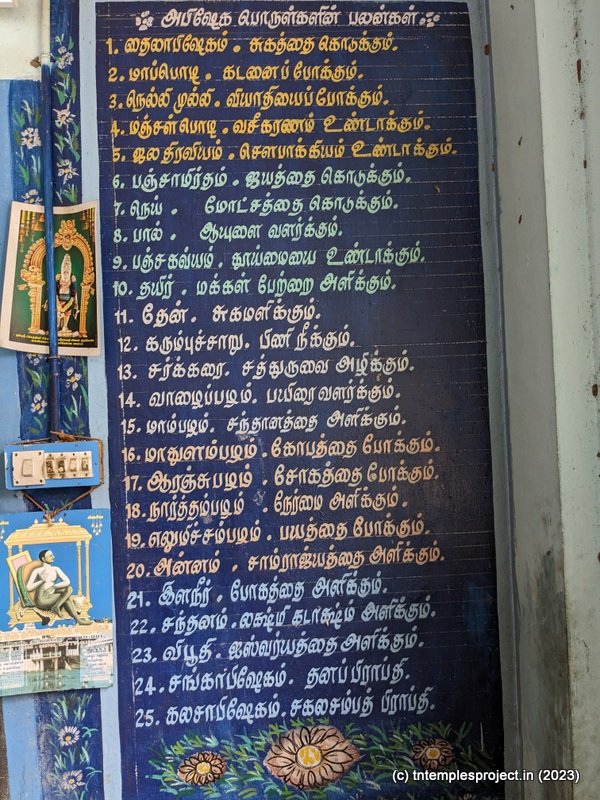 அபிஷேக பொருள்களின் பலன்கள்
1. தைலாபிஷேகம் . சுகத்தை கொடுக்கும்.
2. மாப்பொடி . கடனைப் போக்கும்.
3. நெல்லி முல்லி . வியாதியைப் போக்கும்.
4. மஞ்சள் பொடி . வசீகரணம் உண்டாக்கும்.
5. ஜல திரவியம் . சௌபாக்கியம் உண்டாக்கும்.
6. பஞ்சாமிர்தம் . ஜயத்தை கொடுக்கும்.
7. நெய் . மோட்சத்தை கொடுக்கும்.
8. பால் . ஆயுளை வளர்க்கும்.
9. பஞ்சகவ்யம் . தூய்மையை உண்டாக்கும்.
10. தயிர் . மக்கள் பேற்றை அளிக்கும்.
11. தேன். சுகமளிக்கும்.
12. கரும்புச்சாறு. பிணி நீக்கும்.
13. சர்க்கரை. சத்துருவை அழிக்கும்.
14. வாழைப்பழம். பயிரை வளர்க்கும்.
15. மாம்பழம். சந்தானத்தை அளிக்கும்.
16. மாதுளம்பழம் . கோபத்தை போக்கும்.
17. ஆரஞ்சுபழம் . சோகத்தை போக்கும்.
18. நார்த்தம்பழம் . நேர்மை அளிக்கும்.
19. எலுமிச்சம்பழம் . பயத்தை போக்கும்.
20. அன்னம் . சாம்ராஜ்யத்தை அளிக்கும்.
21. இளநீர் . போகத்தை அளிக்கும்.
22. சந்தனம் . லக்ஷ்மி கடாக்ஷம் அளிக்கும்.
23. விபூதி . ஐஸ்வர்யத்தை அளிக்கும்.
24. சங்காபிஷேகம். தனப் பிராப்தி.
25. கலசாபிஷேகம். சகலசம்பத் பிராப்தி.
(c) tntemplesproject.in (2023)